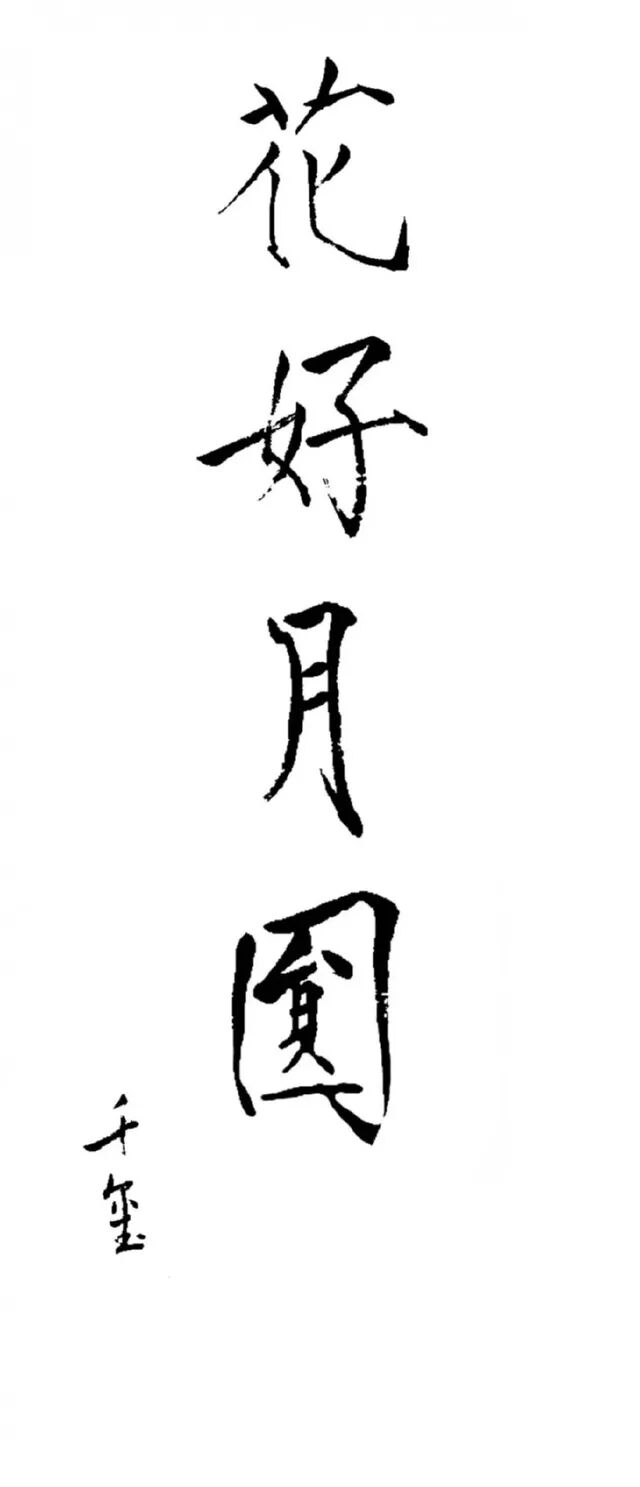 花好月圓
千玺